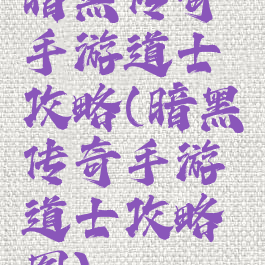 暗黑传奇
手游道士
攻略(暗黑
传奇手游
道士攻略
图)